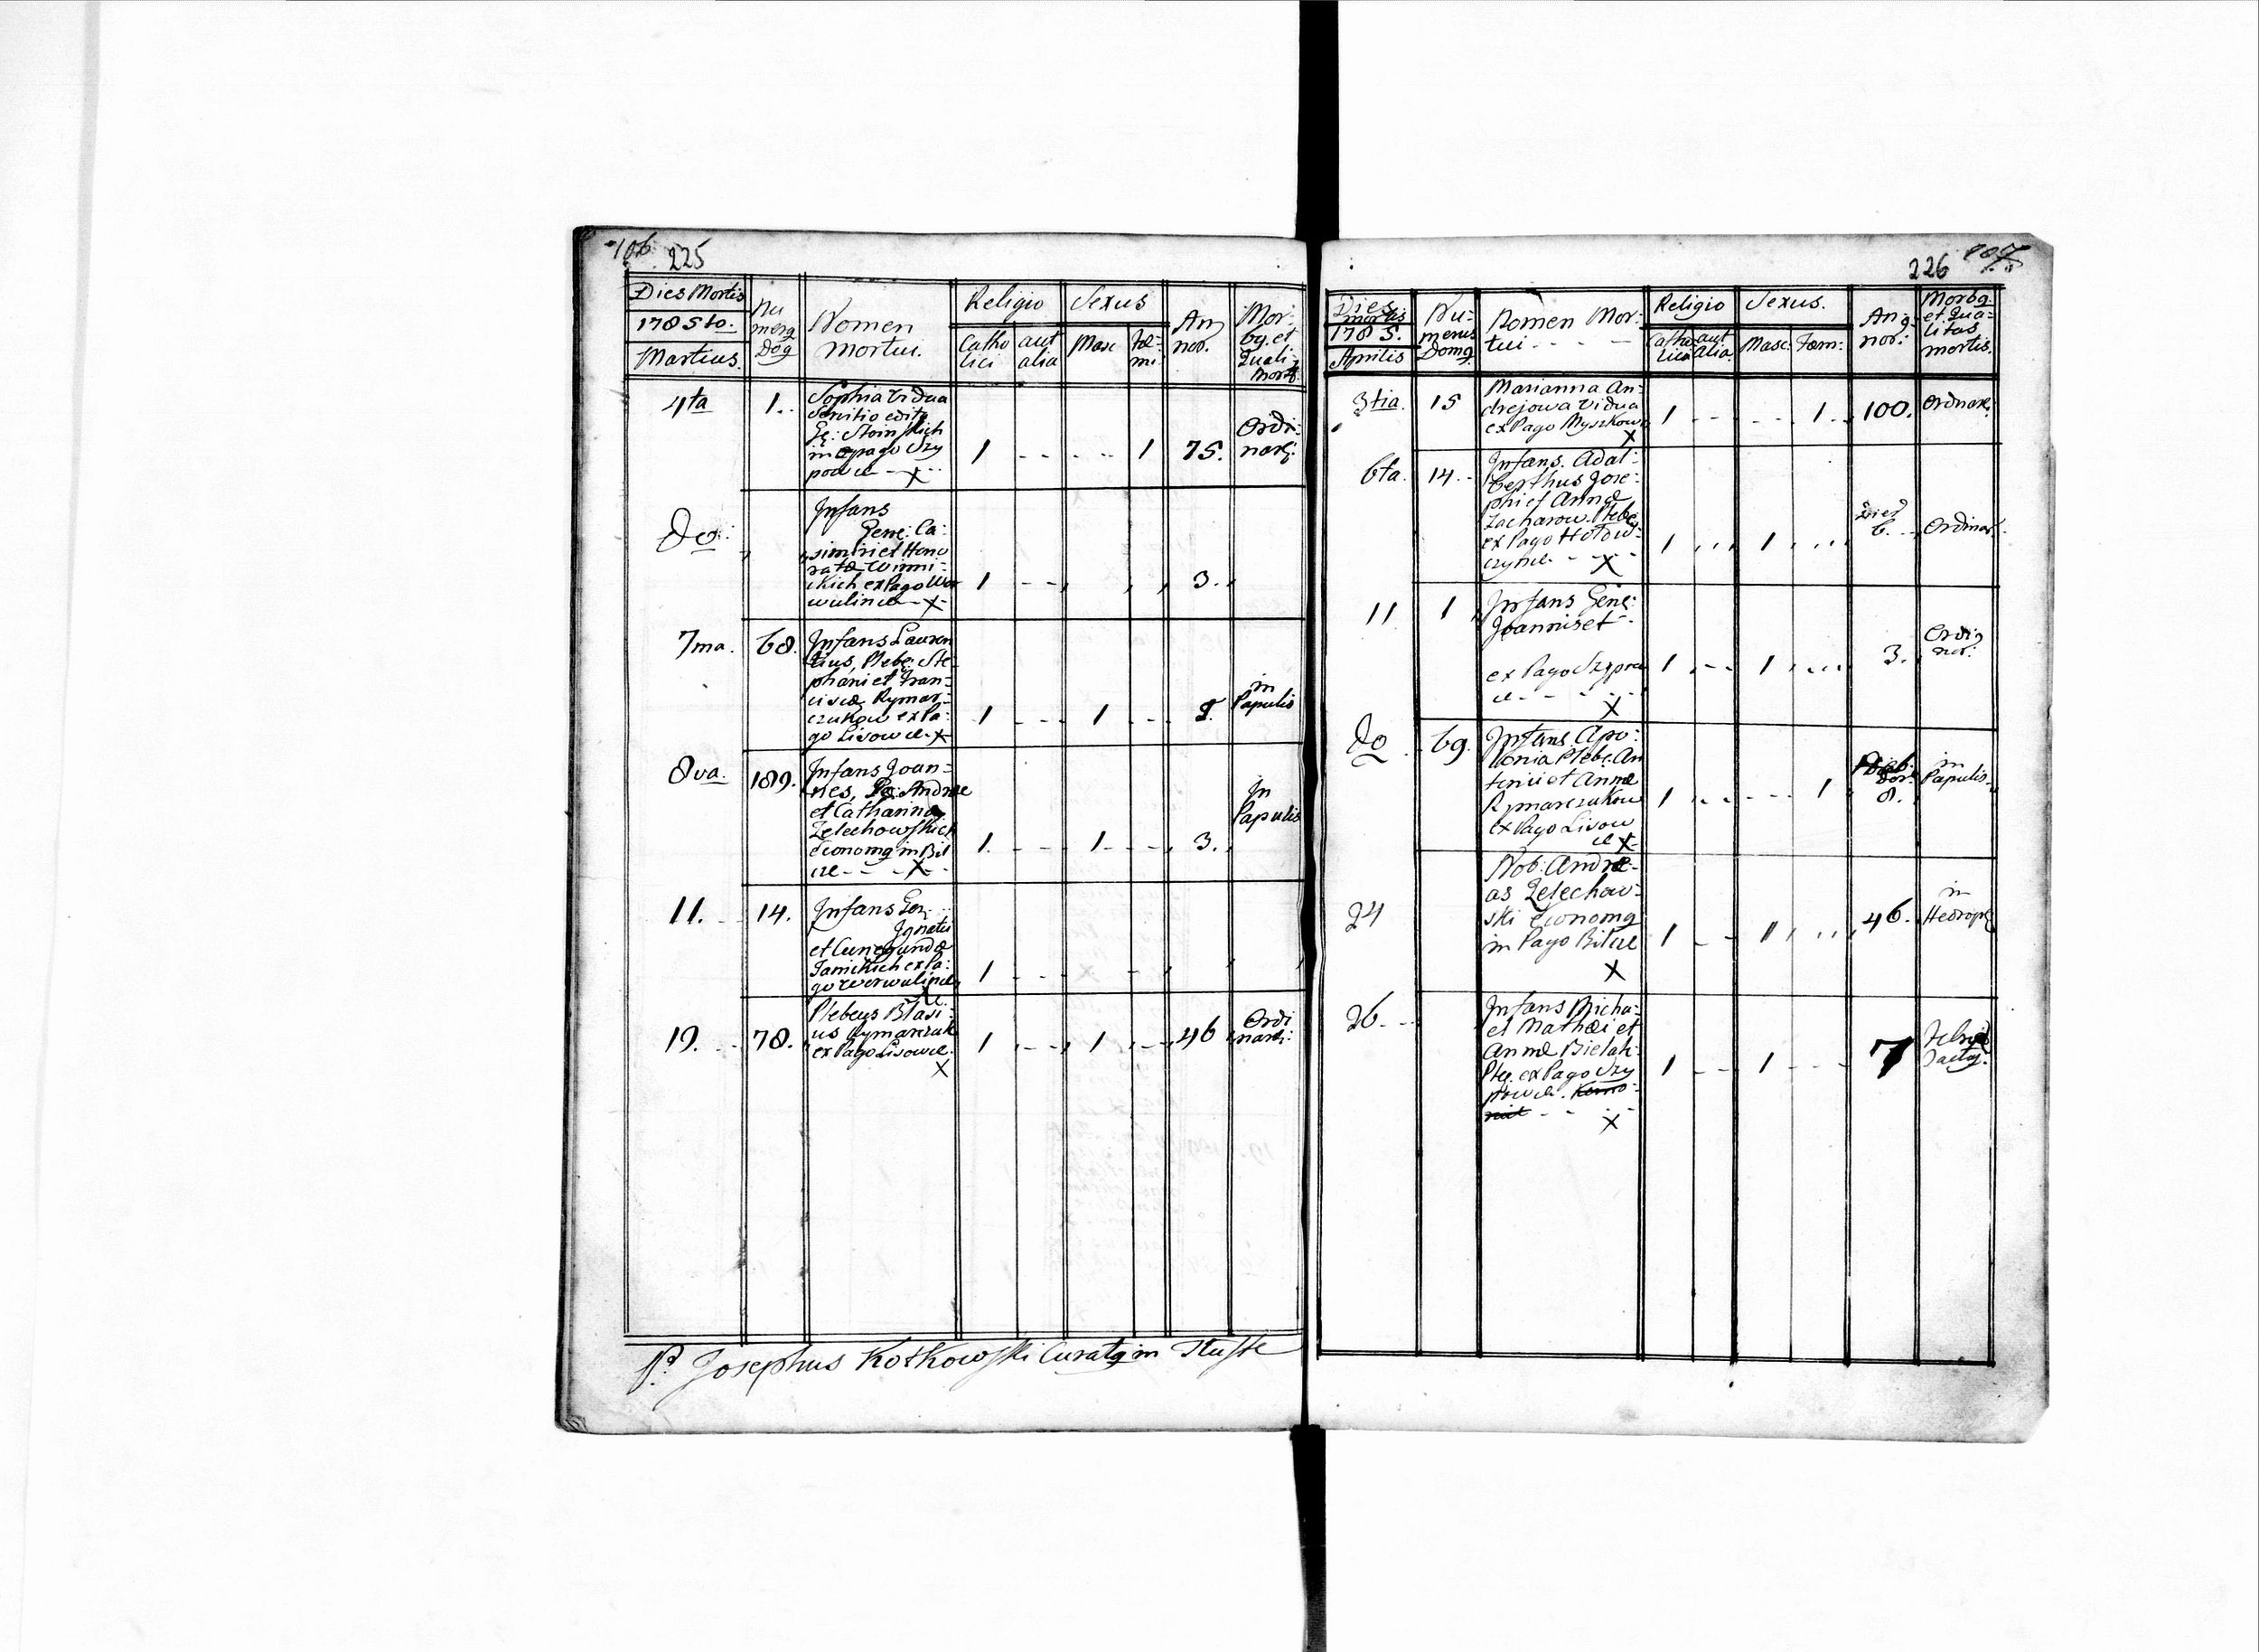 106
225
Dies Mortis
1785to.
Martius.
Nu
merq
Dog
Nomen
Mortui.
Religio
Catho
lici
aut
alia
Sexus
Masc
Fæ-
mi
An
nor.
Mor-
bq. et
Quali-
Mort
4ta
1.
Sophia vidua
Servitio edit
Ge: Stoinskich
in pago Szy
powce - x
1
1
75.
Ordi-
narq.
do:
Infans
Gene: Ca-
simiri et Hono
ratæ Winni-
ckich ex Pago Wor
wulince - x
1
3.
7ma.
68.
Infans Lauren
tius, Plebe: Ste-
phani et Fran-
ciscæ Rymar-
czukow ex Pa-
go Lisowce - x
1
1
in
Papulis
8va.
189.
Infans Joan-
nes, Andreæ
et Catharinæ
Zelechowskich
Economq in Bil
cze - - - x
1.
1
3.
In
Papulis
11.
14.
Infans Gen
Ignatii
et Cunegundæ
ex Pa-
go Worwulince
x
1
19.
78.
Plebeus Blasi-
us Rymarczuk
ex Pago Lisowce.
x
1
1
46
Ordi
narq:
P. Josephus Kotkowski Curatq in Tluste
226
107
Dies
Mortis
1785.
Aprilis
Nu-
merus
Domq
Nomen Mor-
tui - - -
Religio
Catho
lici
aut
alia
Sexus.
Masc:
Fæm:
An
nor:
Morbq.
et Qua-
litas
mortis.
3tia.
15
Marianna An-
drejowa vidua
ex Pago Myszkow
x
1
1
100.
Ordnarq
6ta.
14.
Infans. Adal-
berthus Jose-
phi et Annæ
Zacharow. Plebe
ex Pago Holow-
czynce - - x
1
1
Dies
6.
Ordinar
11
1
Infans Gene:
Joannis et -
ex Pago Szypow
ce - - - -
x
1
1
3.
Ordi-
nar:
do
69.
Infans. Apo-
lonia Plebe: An
tonii et Annæ
Rymarczukow
ex Pago Lisow
ce x
1
1
8.
in
Papulis
24
Nob: Andre-
as Zelechow-
ski Economq
in Pago Bilcze
x
1
1
46.
in
26.
Infans Micha-
el Mathei et
Annæ Bielak
Ple. ex Pago Szy
powce.
x
1
1
7